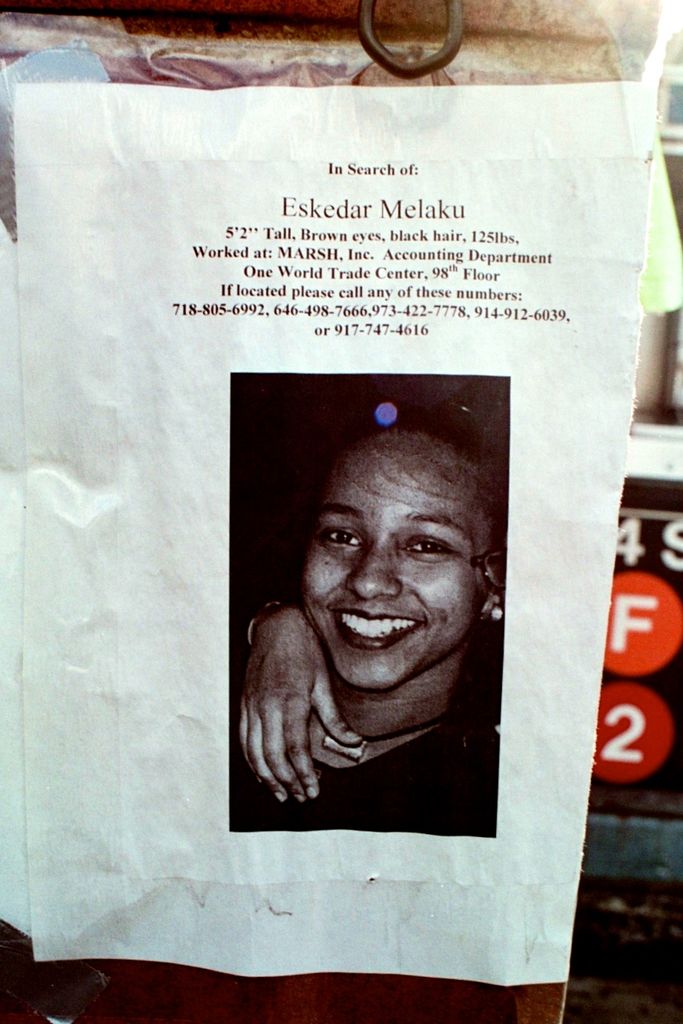 In Search of:
Eskedar Melaku
5'2'' Tall, Brown eyes, black hair, 125lbs,
Worked at: MARSH, Inc. Accounting Department
One World Trade Center, 98th Floor
If located please call any of these numbers:
718-805-6992, 646-498-7666,973-422-7778, 914-912-6039,
or 917-747-4616
4 S
F
2